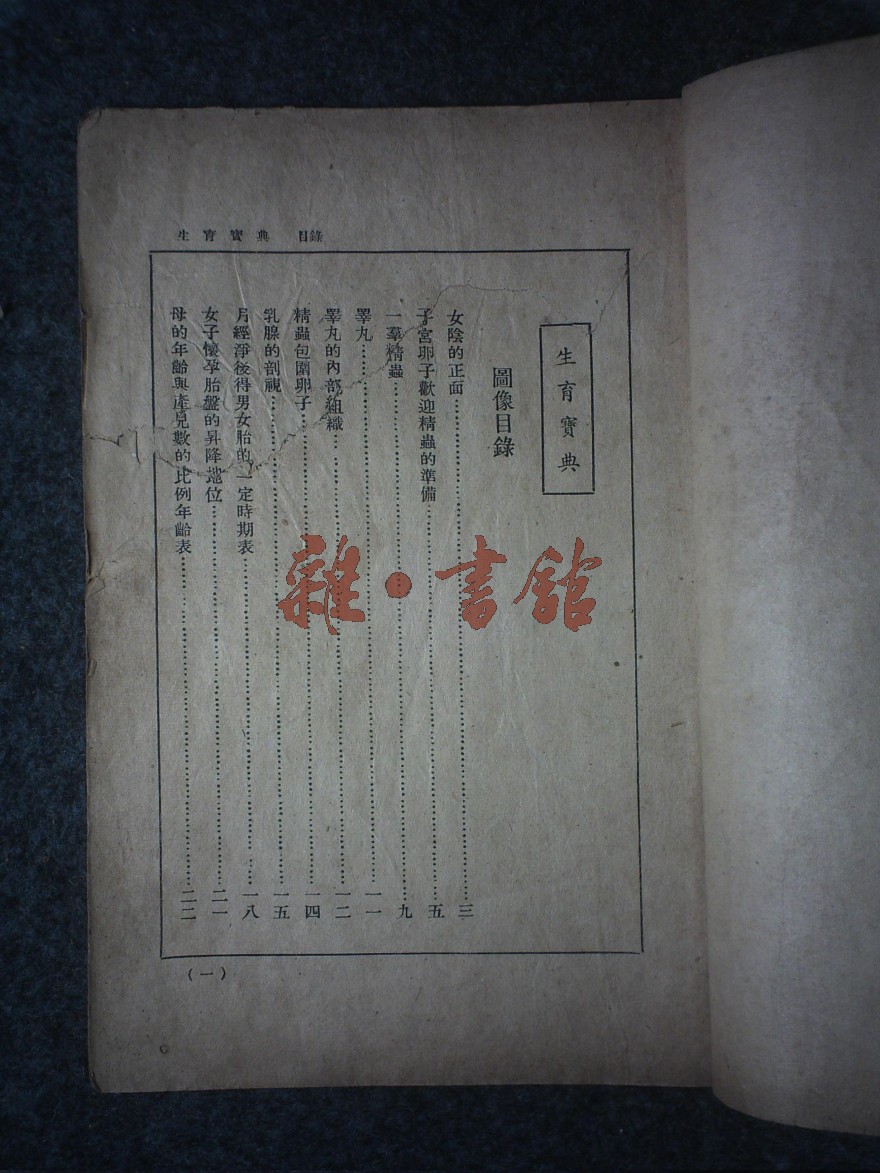 生育寶典　目錄
生育寶典
圖像目錄
女陰的正面……三
子宮卵子歡迎精蟲的準備……五
一羣精蟲……九
睪丸……一一
睪丸的內部組織……一二
精蟲包圍卵子……一四
乳腺的剖視……一五
月經淨後得男女胎的一定時期表……一八
女子懷孕胎盤的昇降地位……二一
母的年齡與產兒數的比例年齡表……二二
（一）
雜・書館